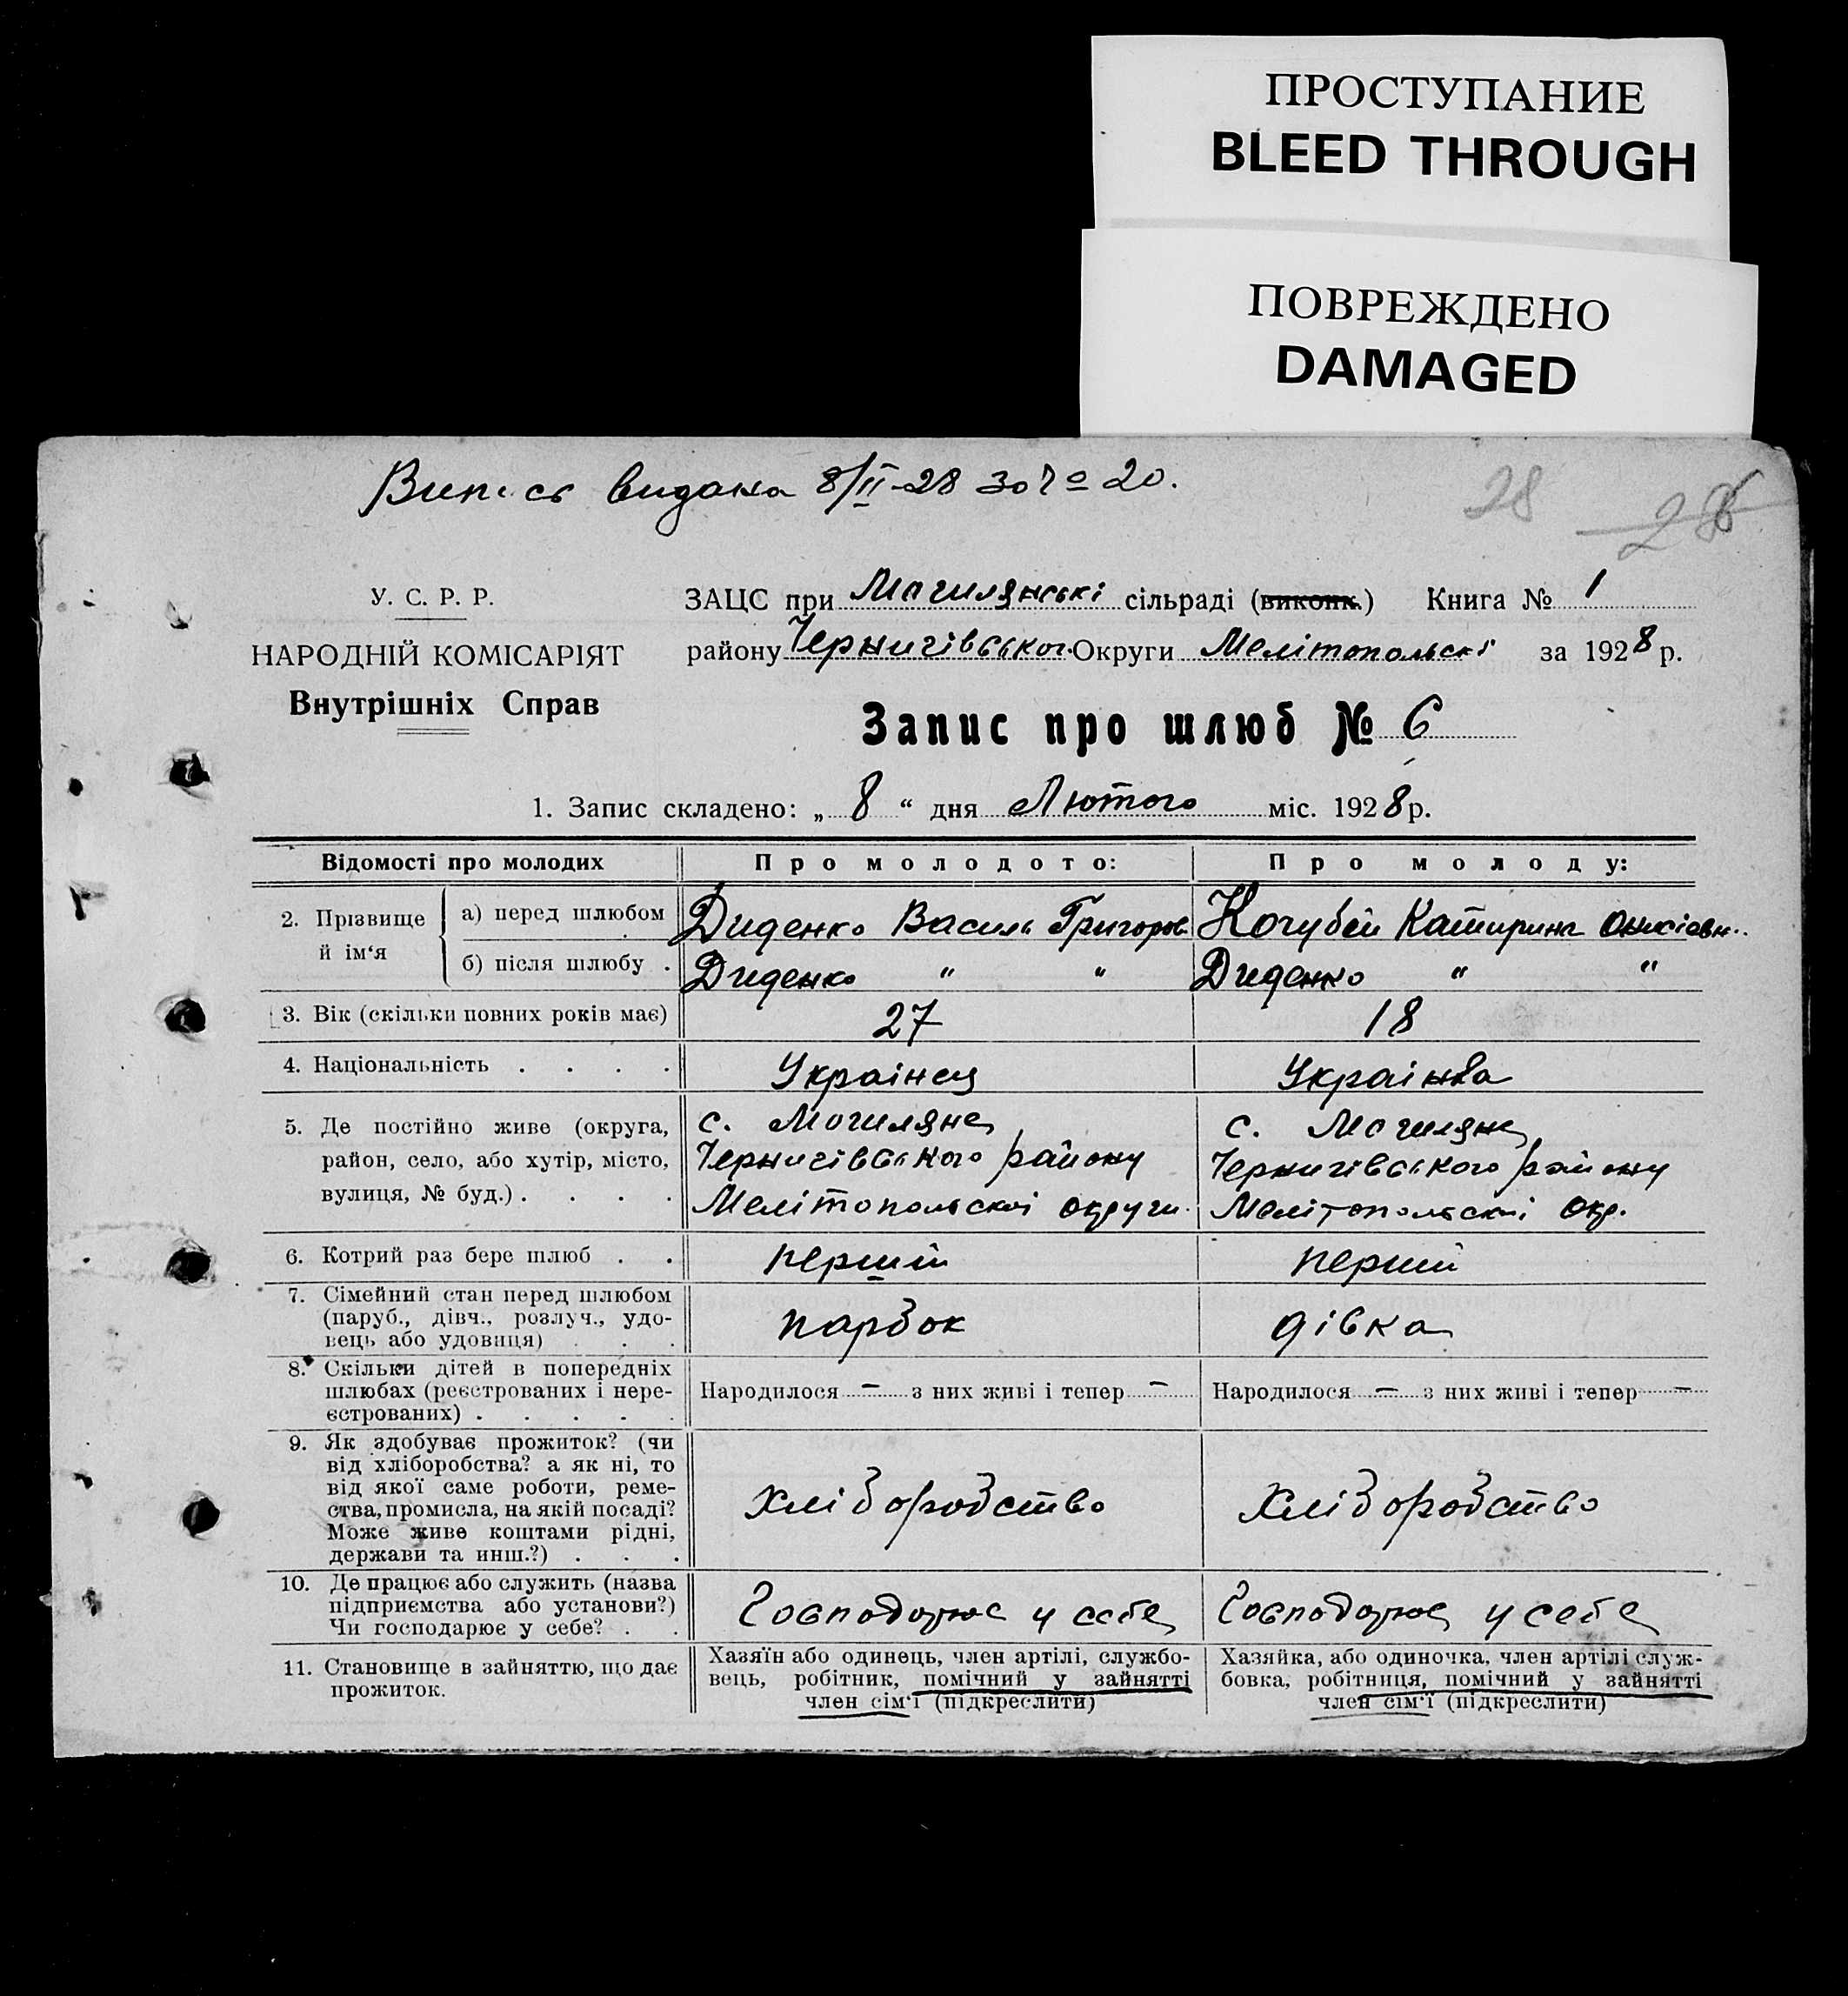 ПРОСТУПАНИЕ
BLEED THROUGH
ПОВРЕЖДЕНО
DAMAGED
Випись видана 8/II-28 за № 20.
28 28
У. С. Р. Р.
НАРОДНІЙ КОМІСАРІЯТ
Внутрішніх Справ
ЗАЦС при Могилянські сільраді (виконк.) Книга № 1
району Чернигівського Округи Мелітопольскі за 1928 р.
Запис про шлюб № 6
1. Запис складено: „ 8 “ дня Лютого міс. 1928 р.
Відомості про молодих
Про молодого:
Про молоду:
2. Прізвище й ім‘я
а) перед шлюбом
Диденко Василь Григоров.
Кочубей Катирина Онисіевн..
б) після шлюбу .
Диденко " "
Диденко " "
3. Вік (скільки повних років має)
27
18
4. Національність . . . .
Украінец
Украінка
5. Де постійно живе (округа,
район, село, або хутір, місто,
вулиця, № буд.) . . . .
с. Могиляне
Чернигівського району
Мелітопольскоі округи.
с. Могиляне
Чернигівського району
Мелітопольскоі окр.
6. Котрий раз бере шлюб . .
перший
перший
7. Сімейний стан перед шлюбом
(паруб., дівч., розлуч., удо-
вець або удовиця) . . .
парбок
дівка
8. Скільки дітей в попередніх
шлюбах (реєстрованих і нере-
єстрованих) . . . . .
Народилося — з них живі і тепер —
Народилося — з них живі і тепер —
9. Як здобуває прожиток? (чи
від хліборобства? а як ні, то
від якої саме роботи, реме-
ства, промисла, на якій посаді?
Може живе коштами рідні,
держави та инш.?) . . .
хліборобство
хліборобство
10. Де працює або служить (назва
підприємства або установи?)
Чи господарює у себе? . .
Господарює у себе
Господарює у себе
11. Становище в зайняттю, що дає
прожиток.
Хазяїн або одинець, член артілі, службо-
вець, робітник, помічний у зайнятті
член сім‘ї (підкреслити)
Хазяйка, або одиночка, член артілі служ-
бовка, робітниця, помічний у зайнятті
член сім‘ї (підкреслити)